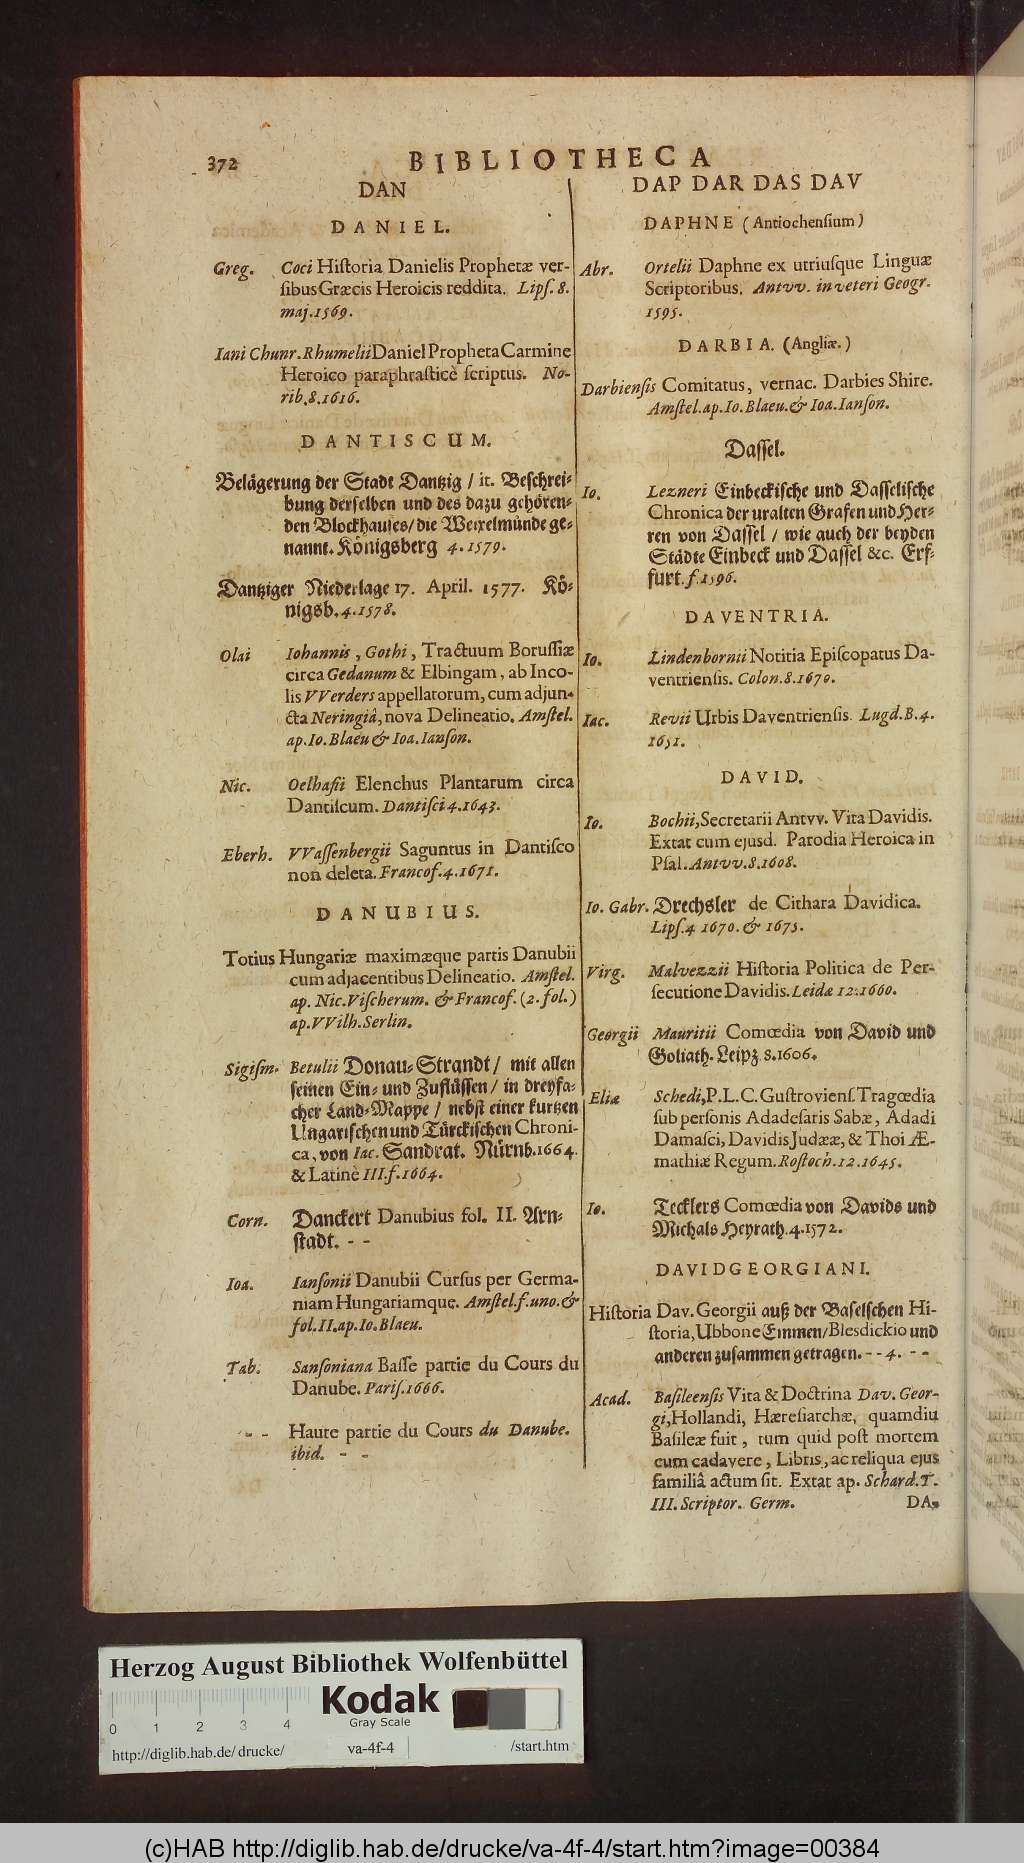 372
BIBLIOTHECA
DAN
DANIEL.
Greg. Coci Hiſtoria Danielis Prophetæ ver-
ſibus Græcis Heroicis reddita. Lipſ. 8.
maj. 1569.
Iani Chunr. Rhumelii Daniel Propheta Carmine
Heroico paraphraſticè ſcriptus. No-
rib. 8. 1616.
DANTISCUM.
Belägerung der Stadt Dantzig / it. Beſchrei-
bung derſelben und des dazu gehören-
den Blockhauſes / die Weixelmünde ge-
nannt. Königsberg 4. 1579.
Dantziger Niederlage 17. April. 1577. Kö-
nigsb. 4. 1578.
Olai Iohannis, Gothi, Tractuum Boruſſiæ
circa Gedanum & Elbingam, ab Inco-
lis VVerders appellatorum, cum adjun-
cta Neringiâ, nova Delineatio. Amſtel.
ap. Io. Blaeu & Ioa. Ianſon.
Nic. Oelhafii Elenchus Plantarum circa
Dantiſcum. Dantiſci 4. 1643.
Eberh. VVaſſenbergii Saguntus in Dantiſco
non deleta. Francof. 4. 1671.
DANUBIUS.
Totius Hungariæ maximæque partis Danubii
cum adjacentibus Delineatio. Amſtel.
ap. Nic. Viſcherum. & Francof. (2. fol.)
ap. VVilh. Serlin.
Sigiſm. Betulii Donau-Strandt / mit allen
ſeinen Ein- und Zuflüſſen / in dreyfa-
cher Land-Mappe / nebſt einer kurtzen
Ungariſchen und Türckiſchen Chroni-
ca, von Iac. Sandrat. Nürnb. 1664.
& Latinè III. f. 1664.
Corn. Danckert Danubius fol. II. Arn-
ſtadt. - -
Ioa. Ianſonii Danubii Curſus per Germa-
niam Hungariamque. Amſtel. f. uno. &
fol. II. ap. Io. Blaeu.
Tab. Sanſoniana Baſſe partie du Cours du
Danube. Pariſ. 1666.
- - Haute partie du Cours du Danube.
ibid. - -
DAP DAR DAS DAV
DAPHNE (Antiochenſium)
Abr. Ortelii Daphne ex utriuſque Linguæ
Scriptoribus. Antvv. in veteri Geogr.
1595.
DARBIA. (Angliæ.)
Darbienſis Comitatus, vernac. Darbies Shire.
Amſtel. ap. Io. Blaeu. & Ioa. Ianſon.
Daſſel.
Io. Lezneri Einbeckiſche und Daſſeliſche
Chronica der uralten Grafen und Her-
ren von Daſſel / wie auch der beyden
Städte Einbeck und Daſſel &c. Erf-
furt. f. 1596.
DAVENTRIA.
Io. Lindenbornii Notitia Epiſcopatus Da-
ventrienſis. Colon. 8. 1670.
Iac. Revii Urbis Daventrienſis. Lugd. B. 4.
1651.
DAVID.
Io. Bochii, Secretarii Antvv. Vita Davidis.
Extat cum ejusd. Parodia Heroica in
Pſal. Antvv. 8. 1608.
Io. Gabr. Drechsler de Cithara Davidica.
Lipſ. 4 1670. & 1675.
Virg. Malvezzii Hiſtoria Politica de Per-
ſecutione Davidis. Leidæ 12. 1660.
Georgii Mauritii Comœdia von David und
Goliath. Leipz. 8. 1606.
Eliæ Schedi, P. L. C. Guſtrovienſ. Tragœdia
ſub perſonis Adadeſaris Sabæ, Adadi
Damaſci, Davidis Judææ, & Thoi Æ-
mathiæ Regum. Roſtoch. 12. 1645.
Io. Tecklers Comœdia von Davids und
Michals Heyrath. 4. 1572.
DAVIDGEORGIANI.
Hiſtoria Dav. Georgii auß der Baſelſchen Hi-
ſtoria, Ubbone Emmen / Blesdickio und
anderen zuſammen getragen. - - 4. - -
Acad. Baſileenſis Vita & Doctrina Dav. Geor-
gi, Hollandi, Hæreſiarchæ, quamdiu
Baſileæ fuit, tum quid poſt mortem
cum cadavere, Libris, ac reliqua ejus
familiâ actum ſit. Extat ap. Schard. T.
III. Scriptor. Germ.
DA-
Herzog August Bibliothek Wolfenbüttel
0 1 2 3 4
Kodak
Gray Scale
http://diglib.hab.de/ drucke/ va-4f-4 /start.htm
(c)HAB http://diglib.hab.de/drucke/va-4f-4/start.htm?image=00384